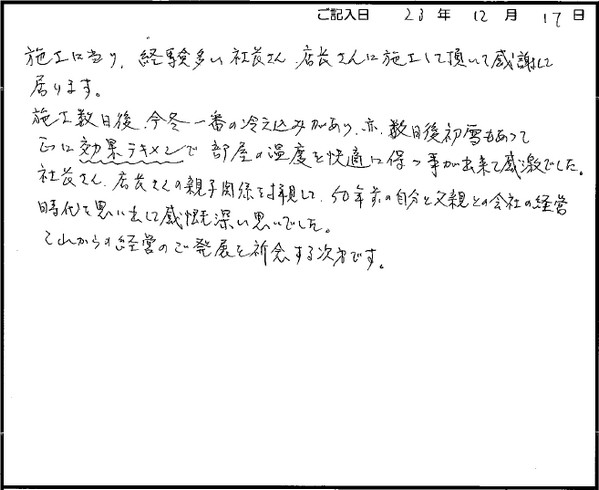 ご記入日 23年 12月 17日
施工に当り、経験多い社長さん、店長さんに施工して頂いて感謝して
居ります。
施工数日後、今冬一番の冷え込みがあり、亦、数日後初雪もあって
正に効果テキメンで部屋の温度を快適に保つ事が出来て感激でした。
社長さん、店長さんの親子関係を拝見して、50年前の自分と父親との会社の経営
時代を思い出して感慨深い思いでした。
これからの経営のご発展を祈念する次第です。